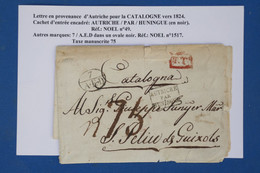 Lettre en provenance d'Autriche pour la CATALOGNE vers 1824.
Cachet d'entrée encadré: AUTRICHE / PAR / HUNINGUE (en noir).
Réf.: NOEL n°49.
Autres marques: 7 / A.E.D dans un ovale noir. Réf.: NOEL n°1517.
Taxe manuscrite 75
Catalogna
Al Sigr Giuseppe
AUTRICHE
PAR
S. Feliu de Guixols